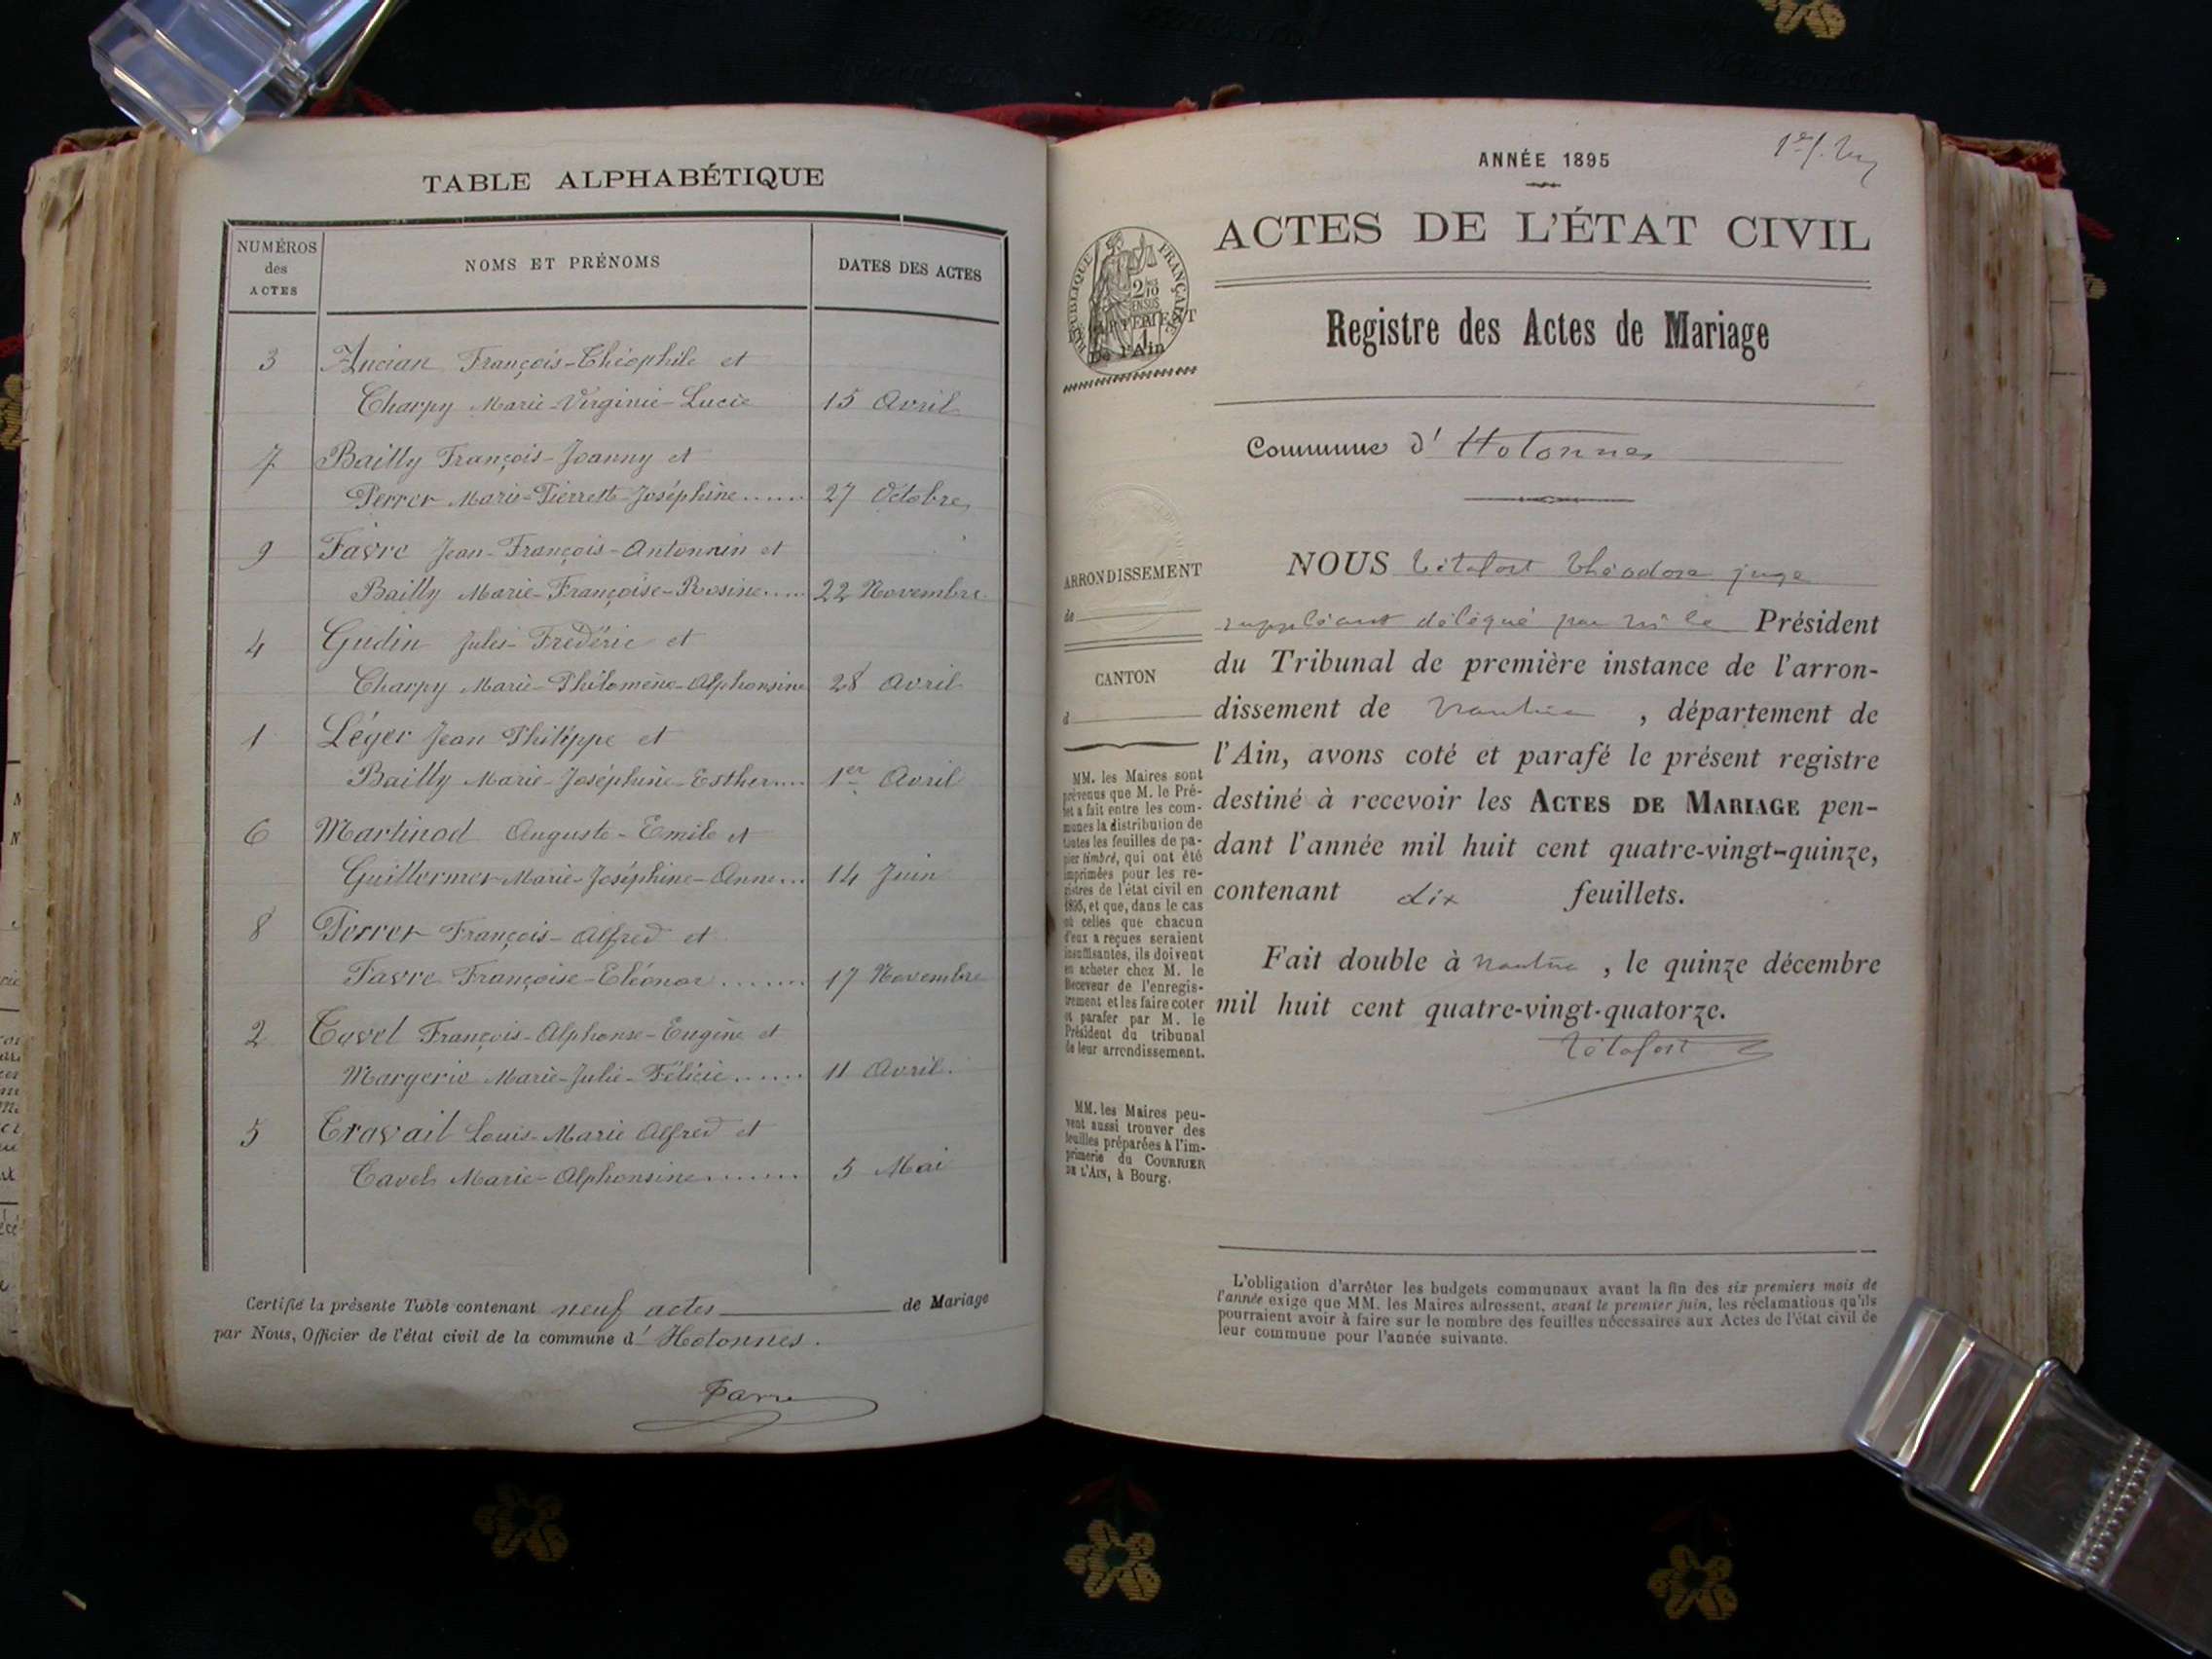 TABLE ALPHABÉTIQUE
NUMÉROS des ACTES
NOMS ET PRÉNOMS
DATES DES ACTES
3 Ancian François-Théophile et
Charpy Marie-Virginie-Lucie 15 Avril
7 Bailly François-Joanny et
Perrer Marie-Pierrette-Joséphine...... 27 Octobre
9 Favre Jean-François-Antonnin et
Bailly Marie-Françoise-Rosine..... 22 Novembre
4 Gudin Jules-Frédéric et
Charpy Marie-Philomène-Alphonsine 28 Avril
1 Léger Jean Philippe et
Bailly Marie-Joséphine-Esther.... 1er Avril
6 Martinod Auguste-Emile et
Guillermer Marie-Joséphine-Anne... 14 Juin
8 Perrer François-Alfred et
Favre Françoise-Eléonor ....... 17 Novembre
2 Cavel François-Alphonse-Eugène et
Margerie Marie-Julie-Félicie...... 11 Avril.
5 Travail Louis-Marie Alfred et
Cavel Marie-Alphonsine....... 5 Mai
Certifié la présente Table contenant neuf actes de Mariage
par Nous, Officier de l'état civil de la commune d' Hotonnes.
ANNÉE 1895
ACTES DE L'ÉTAT CIVIL
RÉPUBLIQUE FRANÇAISE
2/10 EN SUS
DÉPARTEMENT
De l'Ain
Registre des Actes de Mariage
Commune d' Hotonnes
NOUS Tétafort Théodore juge
suppléant délégué par Mr le Président
du Tribunal de première instance de l'arron-
dissement de Nantua , département de
l'Ain, avons coté et parafé le présent registre
destiné à recevoir les ACTES DE MARIAGE pen-
dant l'année mil huit cent quatre-vingt-quinze,
contenant dix feuillets.
Fait double à Nantua , le quinze décembre
mil huit cent quatre-vingt-quatorze.
Tétafort
ARRONDISSEMENT
de
CANTON
d
MM. les Maires sont
prévenus que M. le Pré-
fet a fait entre les com-
munes la distribution de
toutes les feuilles de pa-
pier timbré, qui ont été
imprimées pour les re-
gistres de l'état civil en
1895, et que, dans le cas
où celles que chacun
d'eux a reçues seraient
insuffisantes, ils doivent
en acheter chez M. le
Receveur de l'enregis-
trement et les faire coter
et parafer par M. le
Président du tribunal
de leur arrondissement.
MM. les Maires peu-
vent aussi trouver des
feuilles préparées à l'im-
primerie du COURRIER
DE L'AIN, à Bourg.
L'obligation d'arrêter les budgets communaux avant la fin des six premiers mois de
l'année exige que MM. les Maires adressent, avant le premier juin, les réclamations qu'ils
pourraient avoir à faire sur le nombre des feuilles nécessaires aux Actes de l'état civil de
leur commune pour l'année suivante.